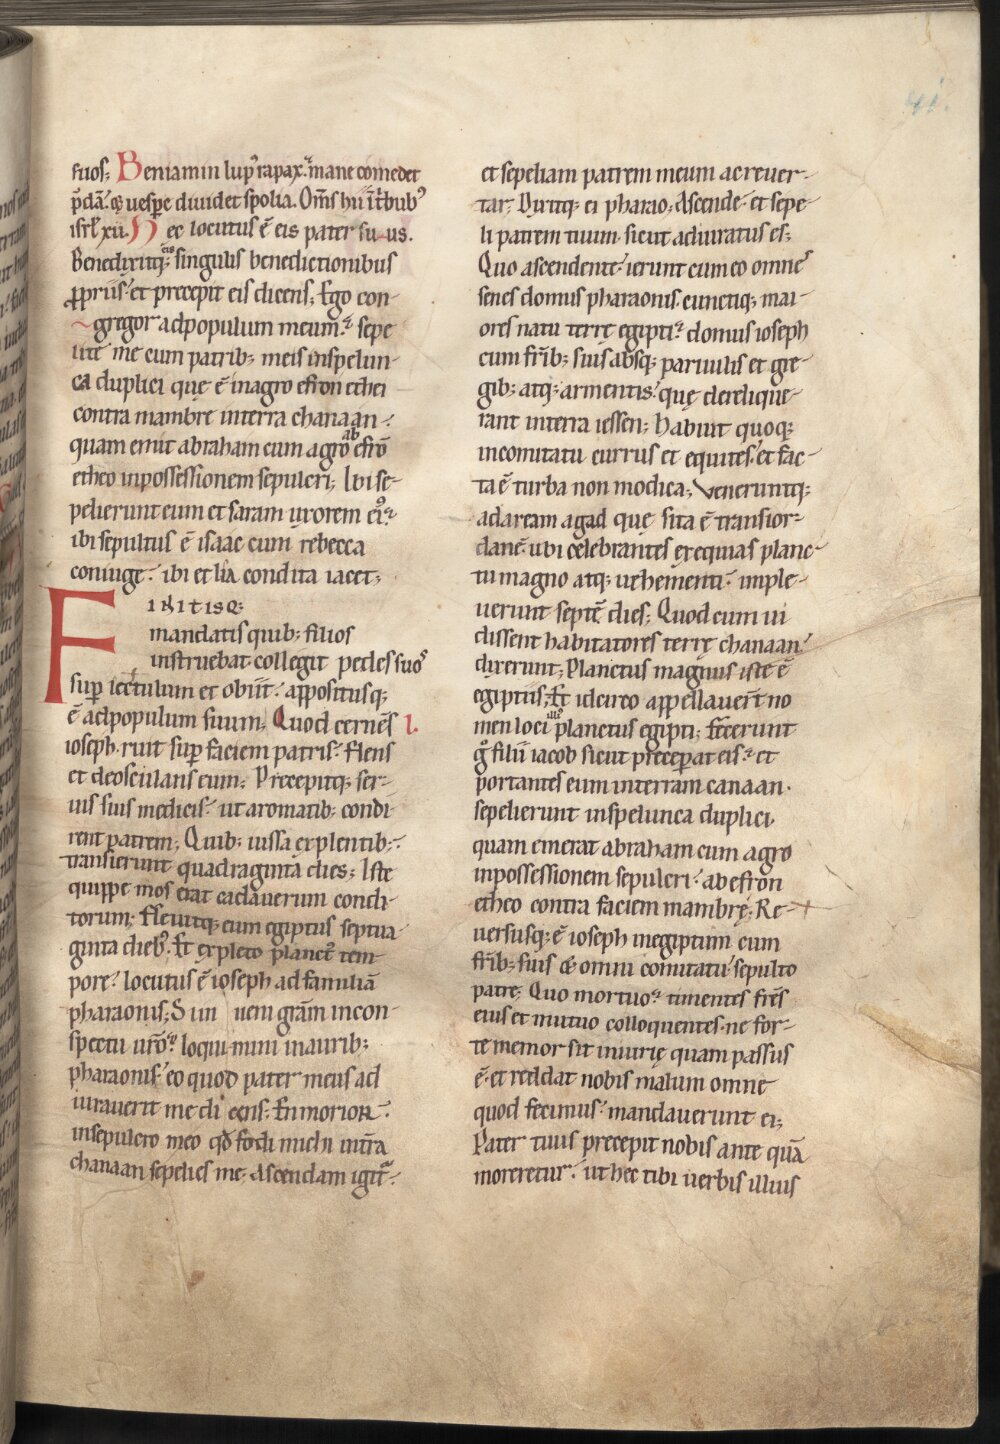 41.
suos; Beniamin lup᷒ rapax. mane comedet
p̄dā. & uespe diuidet spolia. Om̄s hii i tribub᷒
isrl̄ xii. Hec locutus ē eis pater suus.
Benedixitq; eis singulis benedictionibus
ꝓpriis. et precepit eis dicens; Ego con-
gregor ad populum meum. sepe
lite me cum patrib; meis in spelun-
ca duplici que ē in agro efron ethei
contra mambre in terra chanaan.
quam emit abraham cum agro ab efrō
etheo in possessionem sepulcri; Ibi se-
pelierunt eum et saram uxorem ei᷒.
ibi sepultus ē isaac cum rebecca
coniuge. ibi et lia condita iacet;
FINITISQ;
mandatis quib; filios
instruebat. collegit pedes suos
sup lectulum et obiit. appositusq;
ē ad populum suum; Quod cernēs l.
ioseph. ruit sup faciem patris. flens
et deosculans eum; Precepitq; ser-
uis suis medicis. ut aromatib; condi
rent patrem; Quib; iussa explentib;.
transierunt quadraginta dies; Iste
quippe mos erat cadauerum condi-
torum; Fleuitq; eum egiptus septua-
ginta dieb᷒. Et expleto planct᷒ tem-
pore. locutus ē ioseph ad familiā
pharaonis; Si inueni grām in con-
spectu ur̄o. loquimini in aurib;
pharaonis. eo quod pater meus ad
iurauerit me dicens. En morior.
in sepulcro meo qd̄ fodi michi in t̄ra
chanaan sepelies me. Ascendam igit᷒.
et sepeliam patrem meum ac reuer-
tar; Dixitq; ei pharao; Ascende. et sepe-
li patrem tuum. sicut adiuratus es;
Quo ascendente. ierunt cum eo omnes
senes domus pharaonis. cunctiq; mai-
ores natu terrę egipti. domus ioseph
cum fr̄ib; suis absq; paruulis et gre-
gib; atq; armentis. quę derelique-
rant in terra iessen; Habuit quoq;
in comitatu currus et equites. et fac-
ta ē turba non modica; Veneruntq;
ad aream agad que sita ē trans ior-
danē. ubi celebrantes exequias planc-
tu magno atq; uehementi. imple-
uerunt septē dies; Quod cum ui
dissent habitatores terrę chanaan.
dixerunt; Planctus magnus iste ē
egiptiis; Et idcirco appellauer̄t no
men loci illi᷒ planctus egipti; Fecerunt
g̊ filii iacob sicut preceperat eis. et
portantes eum in terram canaan.
sepelierunt in spelunca duplici.
quam emerat abraham cum agro
in possessionem sepulcri. ab efron
etheo contra faciem mambrę; Re-
uersusq; ē ioseph in egiptum cum
fr̄ib; suis & omni comitatu sepulto
patre; Quo mortuo. timentes fr̄es
eius et mutuo colloquentes. ne for-
te memor sit iniurię quam passus
ē. et reddat nobis malum omne
quod fecimus. mandauerunt ei;
Pater tuus precepit nobis ante quā
moreretur. ut hec tibi uerbis illius